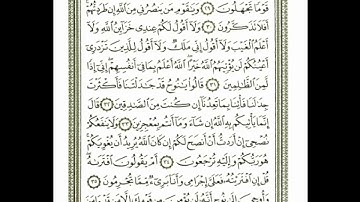 قَوْمًا تَجْهَلُونَ ﴿٢٩﴾ وَيَٰقَوْمِ مَن يَنصُرُنِى مِنَ ٱللَّهِ إِن طَرَدتُّهُمْ
أَفَلَا تَذَكَّرُونَ ﴿٣٠﴾ وَلَآ أَقُولُ لَكُمْ عِندِى خَزَآئِنُ ٱللَّهِ وَلَآ
أَعْلَمُ ٱلْغَيْبَ وَلَآ أَقُولُ إِنِّى مَلَكٌ وَلَآ أَقُولُ لِلَّذِينَ تَزْدَرِىٓ
أَعْيُنُكُمْ لَن يُؤْتِيَهُمُ ٱللَّهُ خَيْرًا ٱللَّهُ أَعْلَمُ بِمَا فِىٓ أَنفُسِهِمْ إِنِّىٓ إِذًا
لَّمِنَ ٱلظَّٰلِمِينَ ﴿٣١﴾ قَالُوا۟ يَٰنُوحُ قَدْ جَٰدَلْتَنَا فَأَكْثَرْتَ
جِدَٰلَنَا فَأْتِنَا بِمَا تَعِدُنَآ إِن كُنتَ مِنَ ٱلصَّٰدِقِينَ ﴿٣٢﴾ قَالَ
إِنَّمَا يَأْتِيكُم بِهِ ٱللَّهُ إِن شَآءَ وَمَآ أَنتُم بِمُعْجِزِينَ ﴿٣٣﴾ وَلَا يَنفَعُكُمْ
نُصْحِىٓ إِنْ أَرَدتُّ أَنْ أَنصَحَ لَكُمْ إِن كَانَ ٱللَّهُ يُرِيدُ أَن يُغْوِيَكُمْ
هُوَ رَبُّكُمْ وَإِلَيْهِ تُرْجَعُونَ ﴿٣٤﴾ أَمْ يَقُولُونَ ٱفْتَرَىٰهُ
قُلْ إِنِ ٱفْتَرَيْتُهُۥ فَعَلَىَّ إِجْرَامِى وَأَنَا۠ بَرِىٓءٌ مِّمَّا تُجْرِمُونَ ﴿٣٥﴾
وَأُوحِىَ إِلَىٰ نُوحٍ أَنَّهُۥ لَن يُؤْمِنَ مِن قَوْمِكَ إِلَّا مَن قَدْ ءَامَنَ